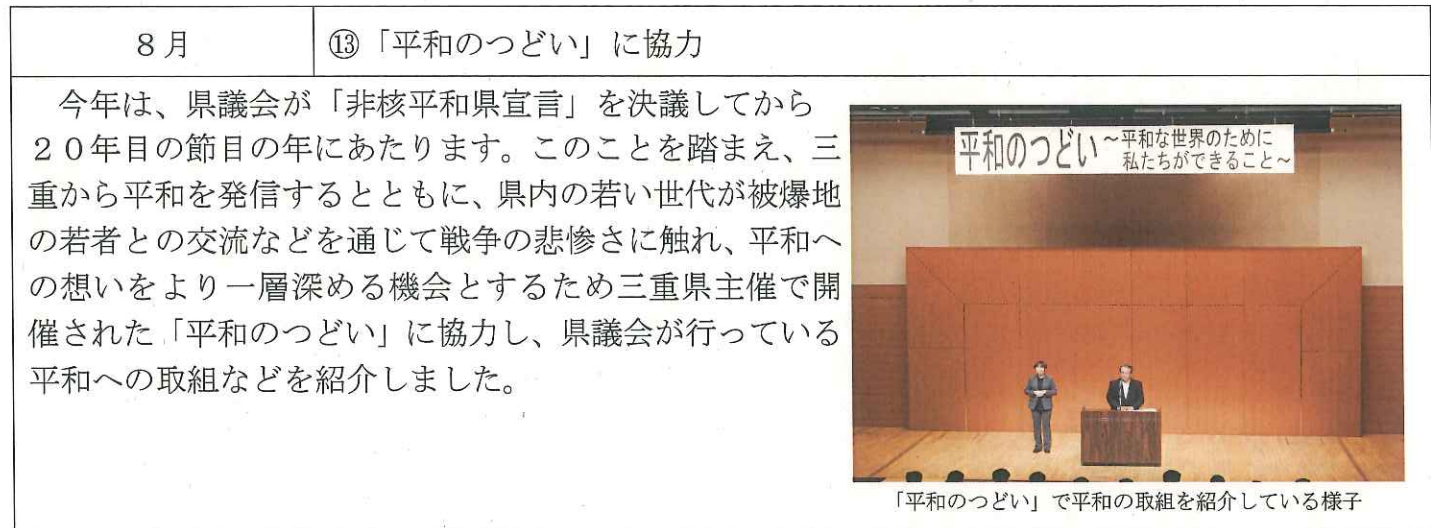 8月
⑬「平和のつどい」に協力
今年は、県議会が「非核平和県宣言」を決議してから
20年目の節目の年にあたります。このことを踏まえ、三
重から平和を発信するとともに、県内の若い世代が被爆地
の若者との交流などを通じて戦争の悲惨さに触れ、平和へ
の想いをより一層深める機会とするため三重県主催で開
催された「平和のつどい」に協力し、県議会が行っている
平和への取組などを紹介しました。
平和のつどい～平和な世界のために
私たちができること～
「平和のつどい」で平和の取組を紹介している様子